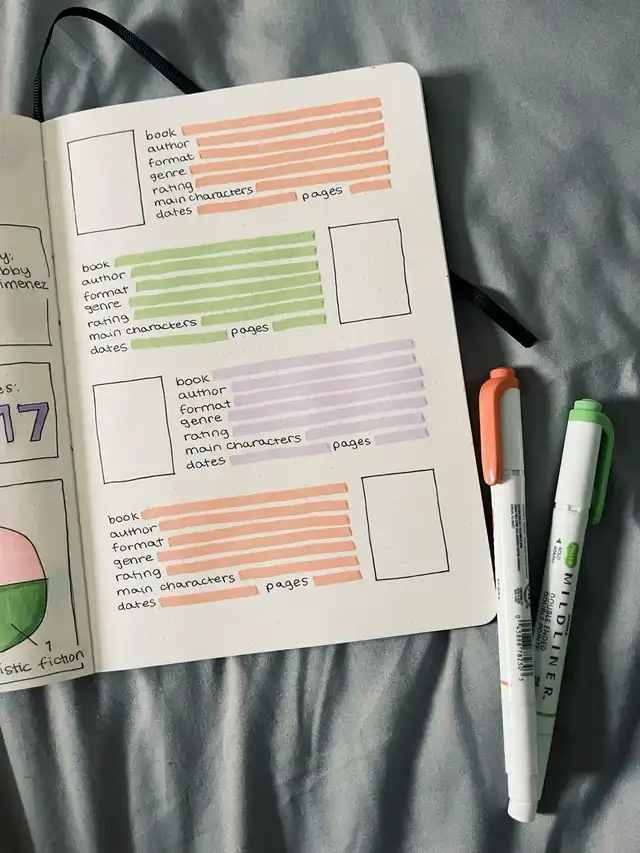 y:
bby
imenez
es:
17
1
istic fiction
book
author
format
genre
rating
main characters
dates pages
book
author
format
genre
rating
main characters
dates pages
book
author
format
genre
rating
main characters
dates pages
book
author
format
genre
rating
main characters
dates pages
MILDLINER
DOUBLE ENDED